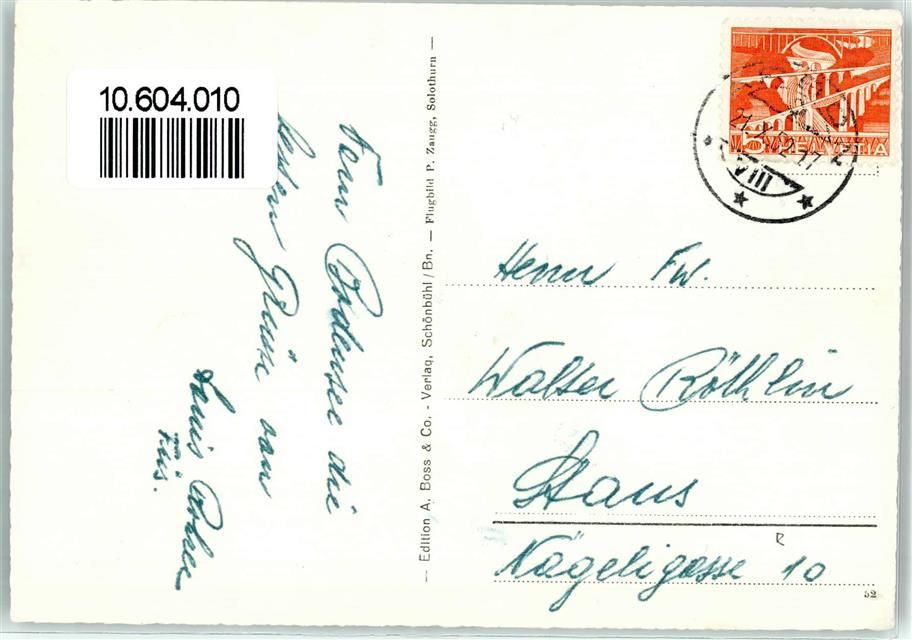 10.604.010
Vom Bodensee die
besten Grüsse von
Louis
Füs.
— Edition A. Boss & Co. - Verlag, Schönbühl/Bn. — Flugbild P. Zaugg, Solothurn —
HELVETIA
5
21.X.52.-17
VIII
Herrn Fw.
Walter Röthlin
Stans
Nägeligasse 10
52